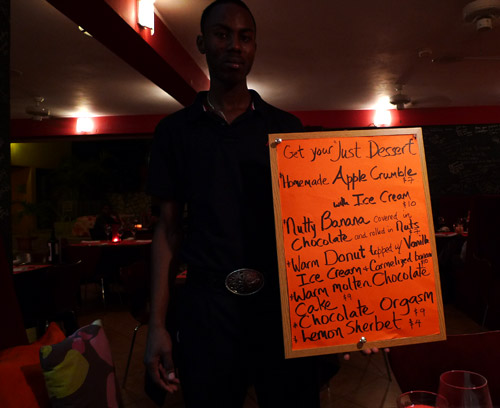 Get your "Just Dessert"
Homemade Apple Crumble
$7
with Ice Cream
$10
"Nutty Banana covered in
Chocolate and rolled in Nuts
+ Warm Donut topped w/ Vanilla
Ice Cream + Carmelized banana
+ Warm molten Chocolate
Cake $9
+ Chocolate Orgasm
$9
+ Lemon Sherbet $4